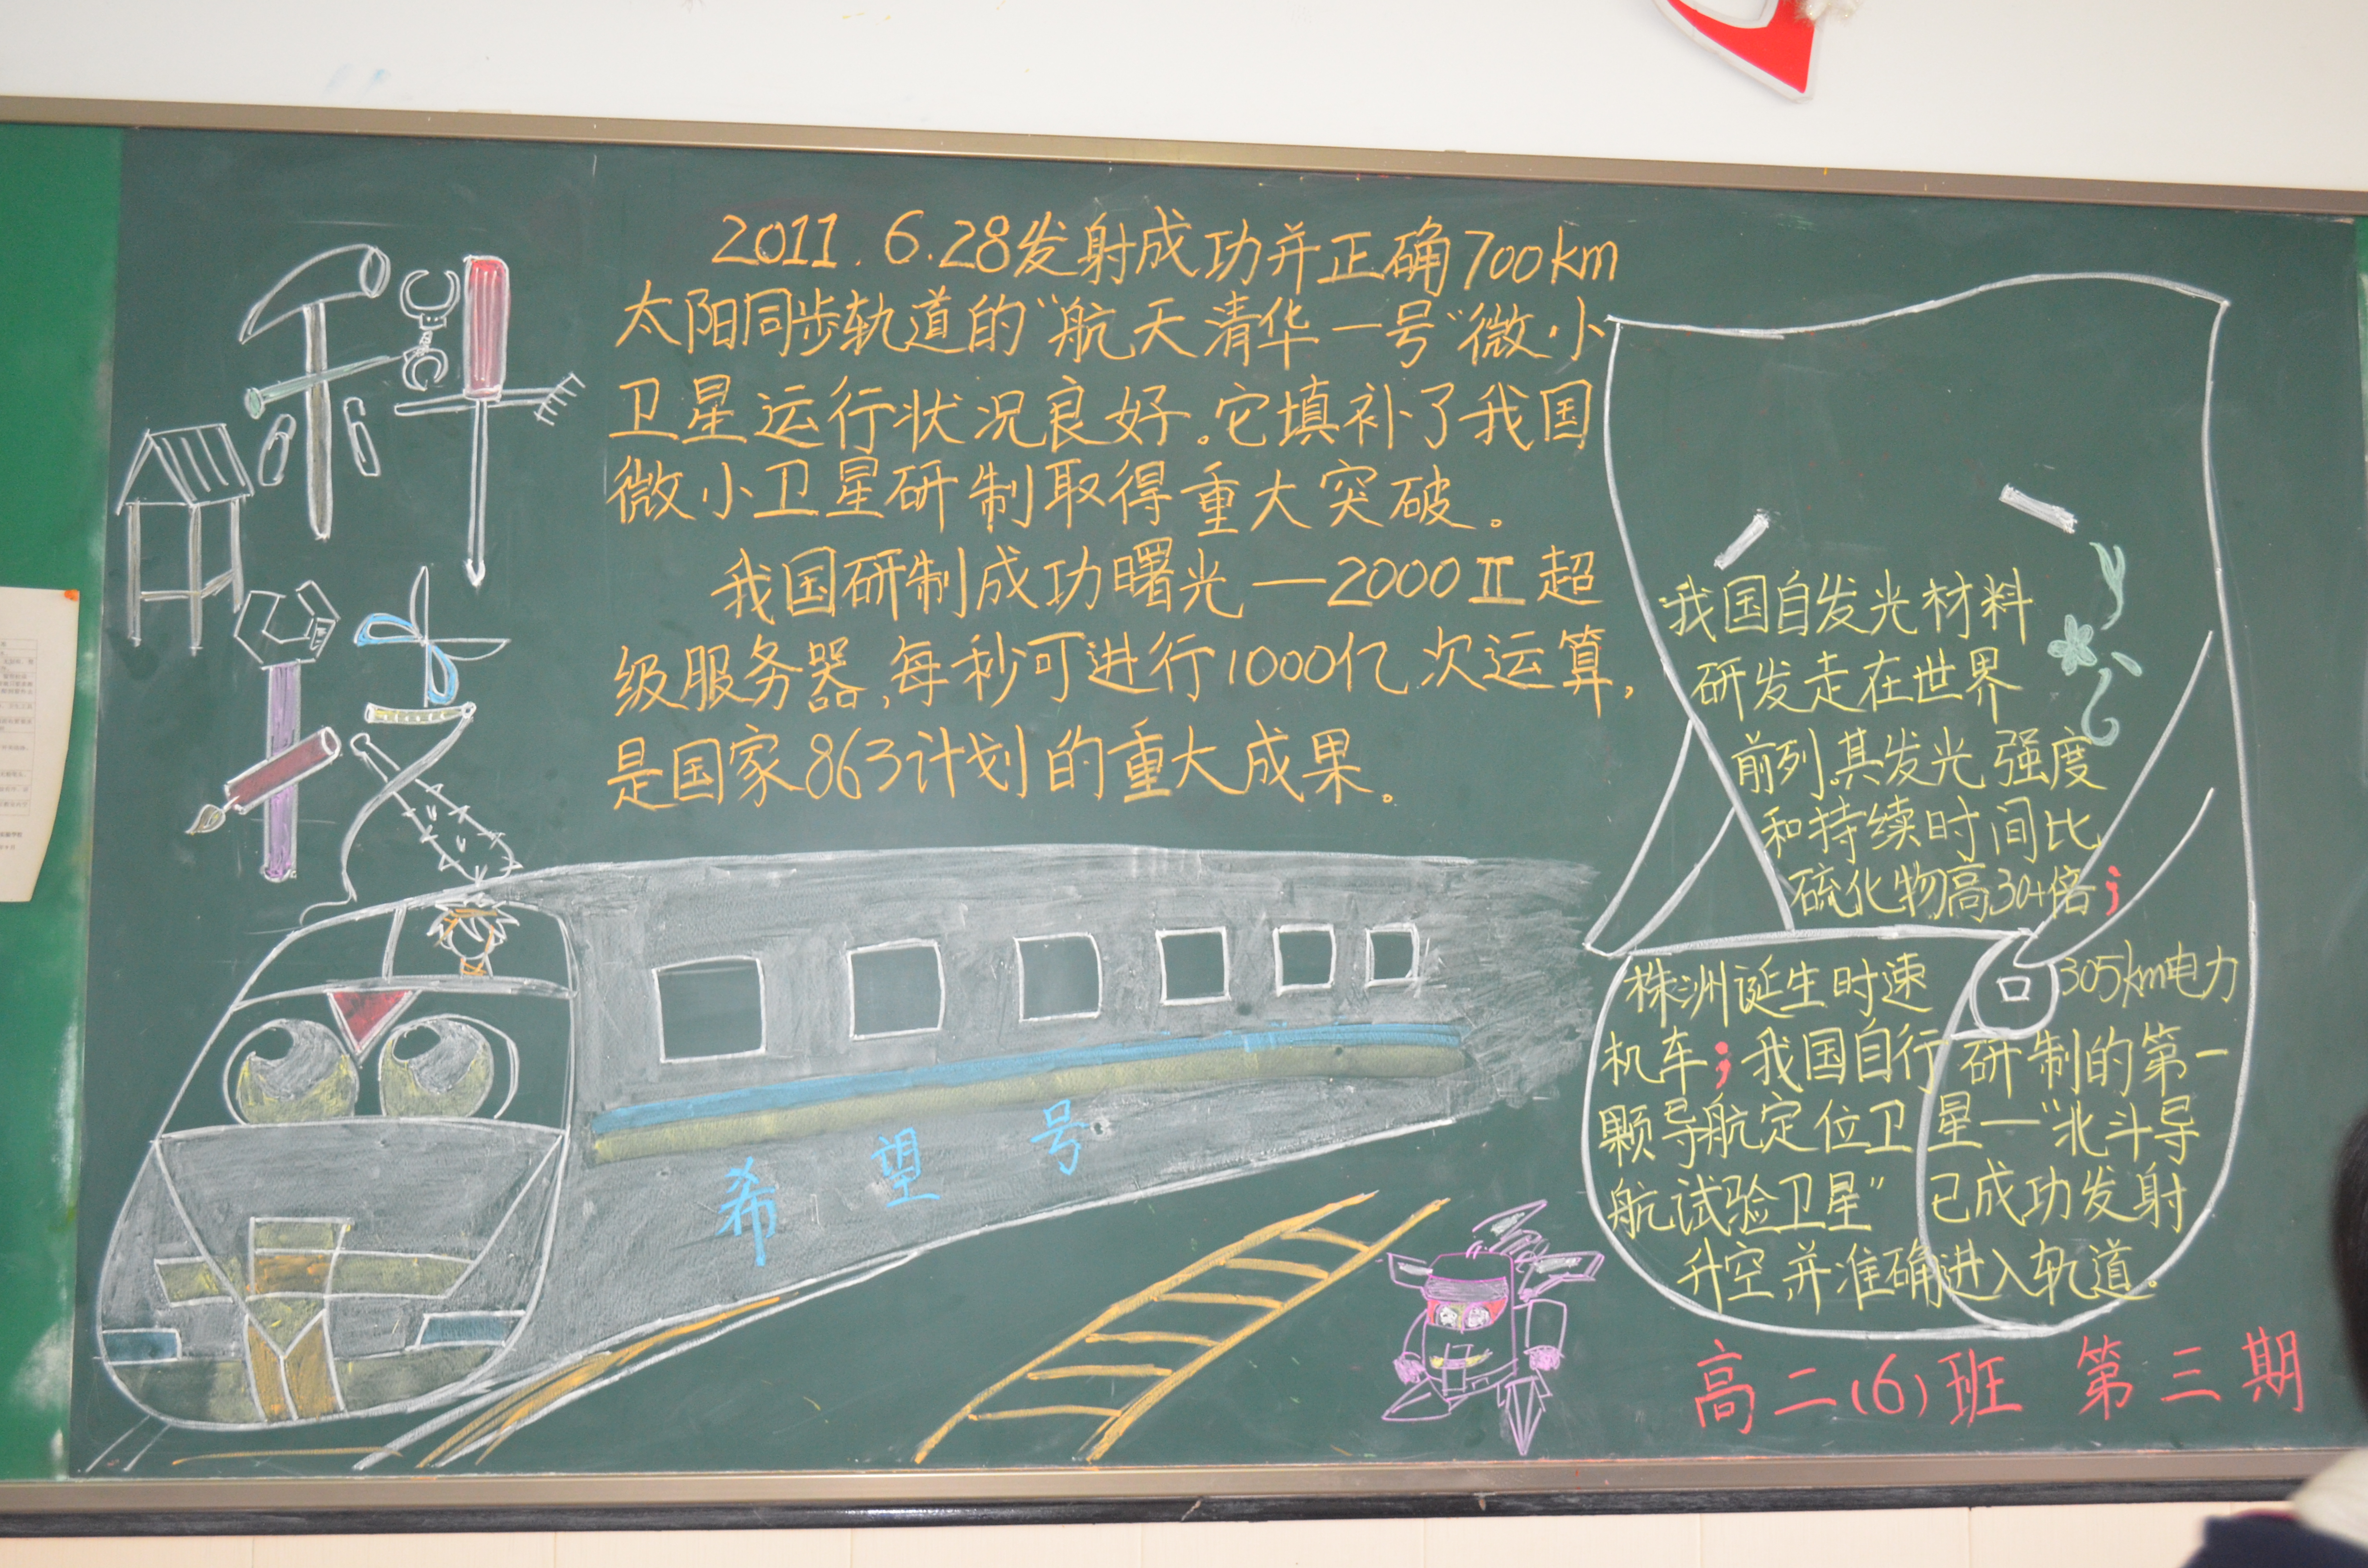 科技
2011.6.28发射成功并正确700km
太阳同步轨道的“航天清华一号”微小
卫星运行状况良好。它填补了我国
微小卫星研制取得重大突破。
我国研制成功曙光—2000Ⅱ超
级服务器,每秒可进行1000亿次运算,
是国家863计划的重大成果。
希望号
我国自发光材料
研发走在世界
前列.其发光强度
和持续时间比
硫化物高30+倍;
株洲诞生时速305km电力
机车;我国自行研制的第一
颗导航定位卫星—“北斗导
航试验卫星”已成功发射
升空并准确进入轨道。
高二(6)班 第三期